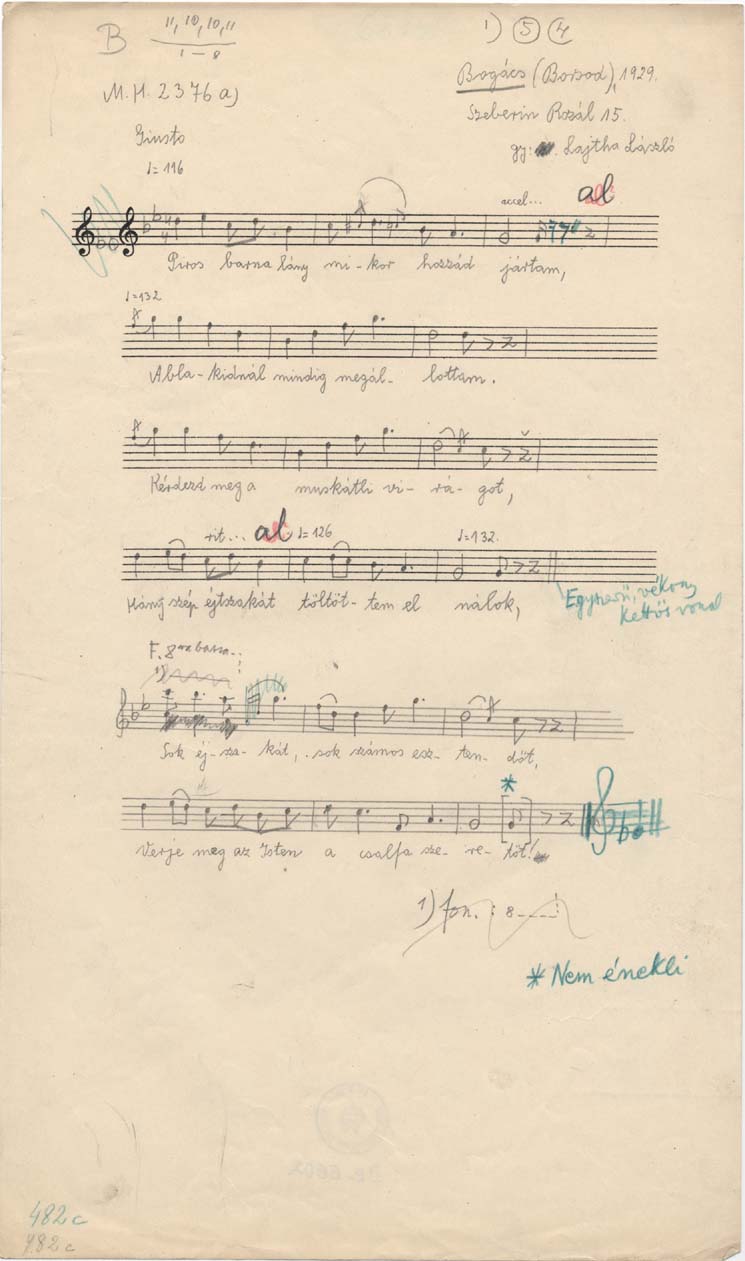 B 11, 10, 10, 11
1 – 8
1) 5 4
M.H. 2376 a)
Bogács (Borsod), 1929.
Szeberin Rozál 15.
gy: Lajtha László
Giusto
♩= 116
accel... al
Piros barna lány mi-kor hozzád jártam,
♩=132
Abla-kidnál mindig megál-lottam.
Kérdezd meg a muskátli vi-rá-got,
rit... al ♩=126 ♩=132.
Hány szép éjtszakát töltöt-tem el nálok,
Egyszerű, vékony
kettős vonal
F. 8va bassa...
1)
Sok éj-sza-kát, sok számos esz-ten-dőt,
*
Verje meg az Isten a csalfa sze-re-tőt!
1) fon. : 8----
* Nem énekli
482c
482c